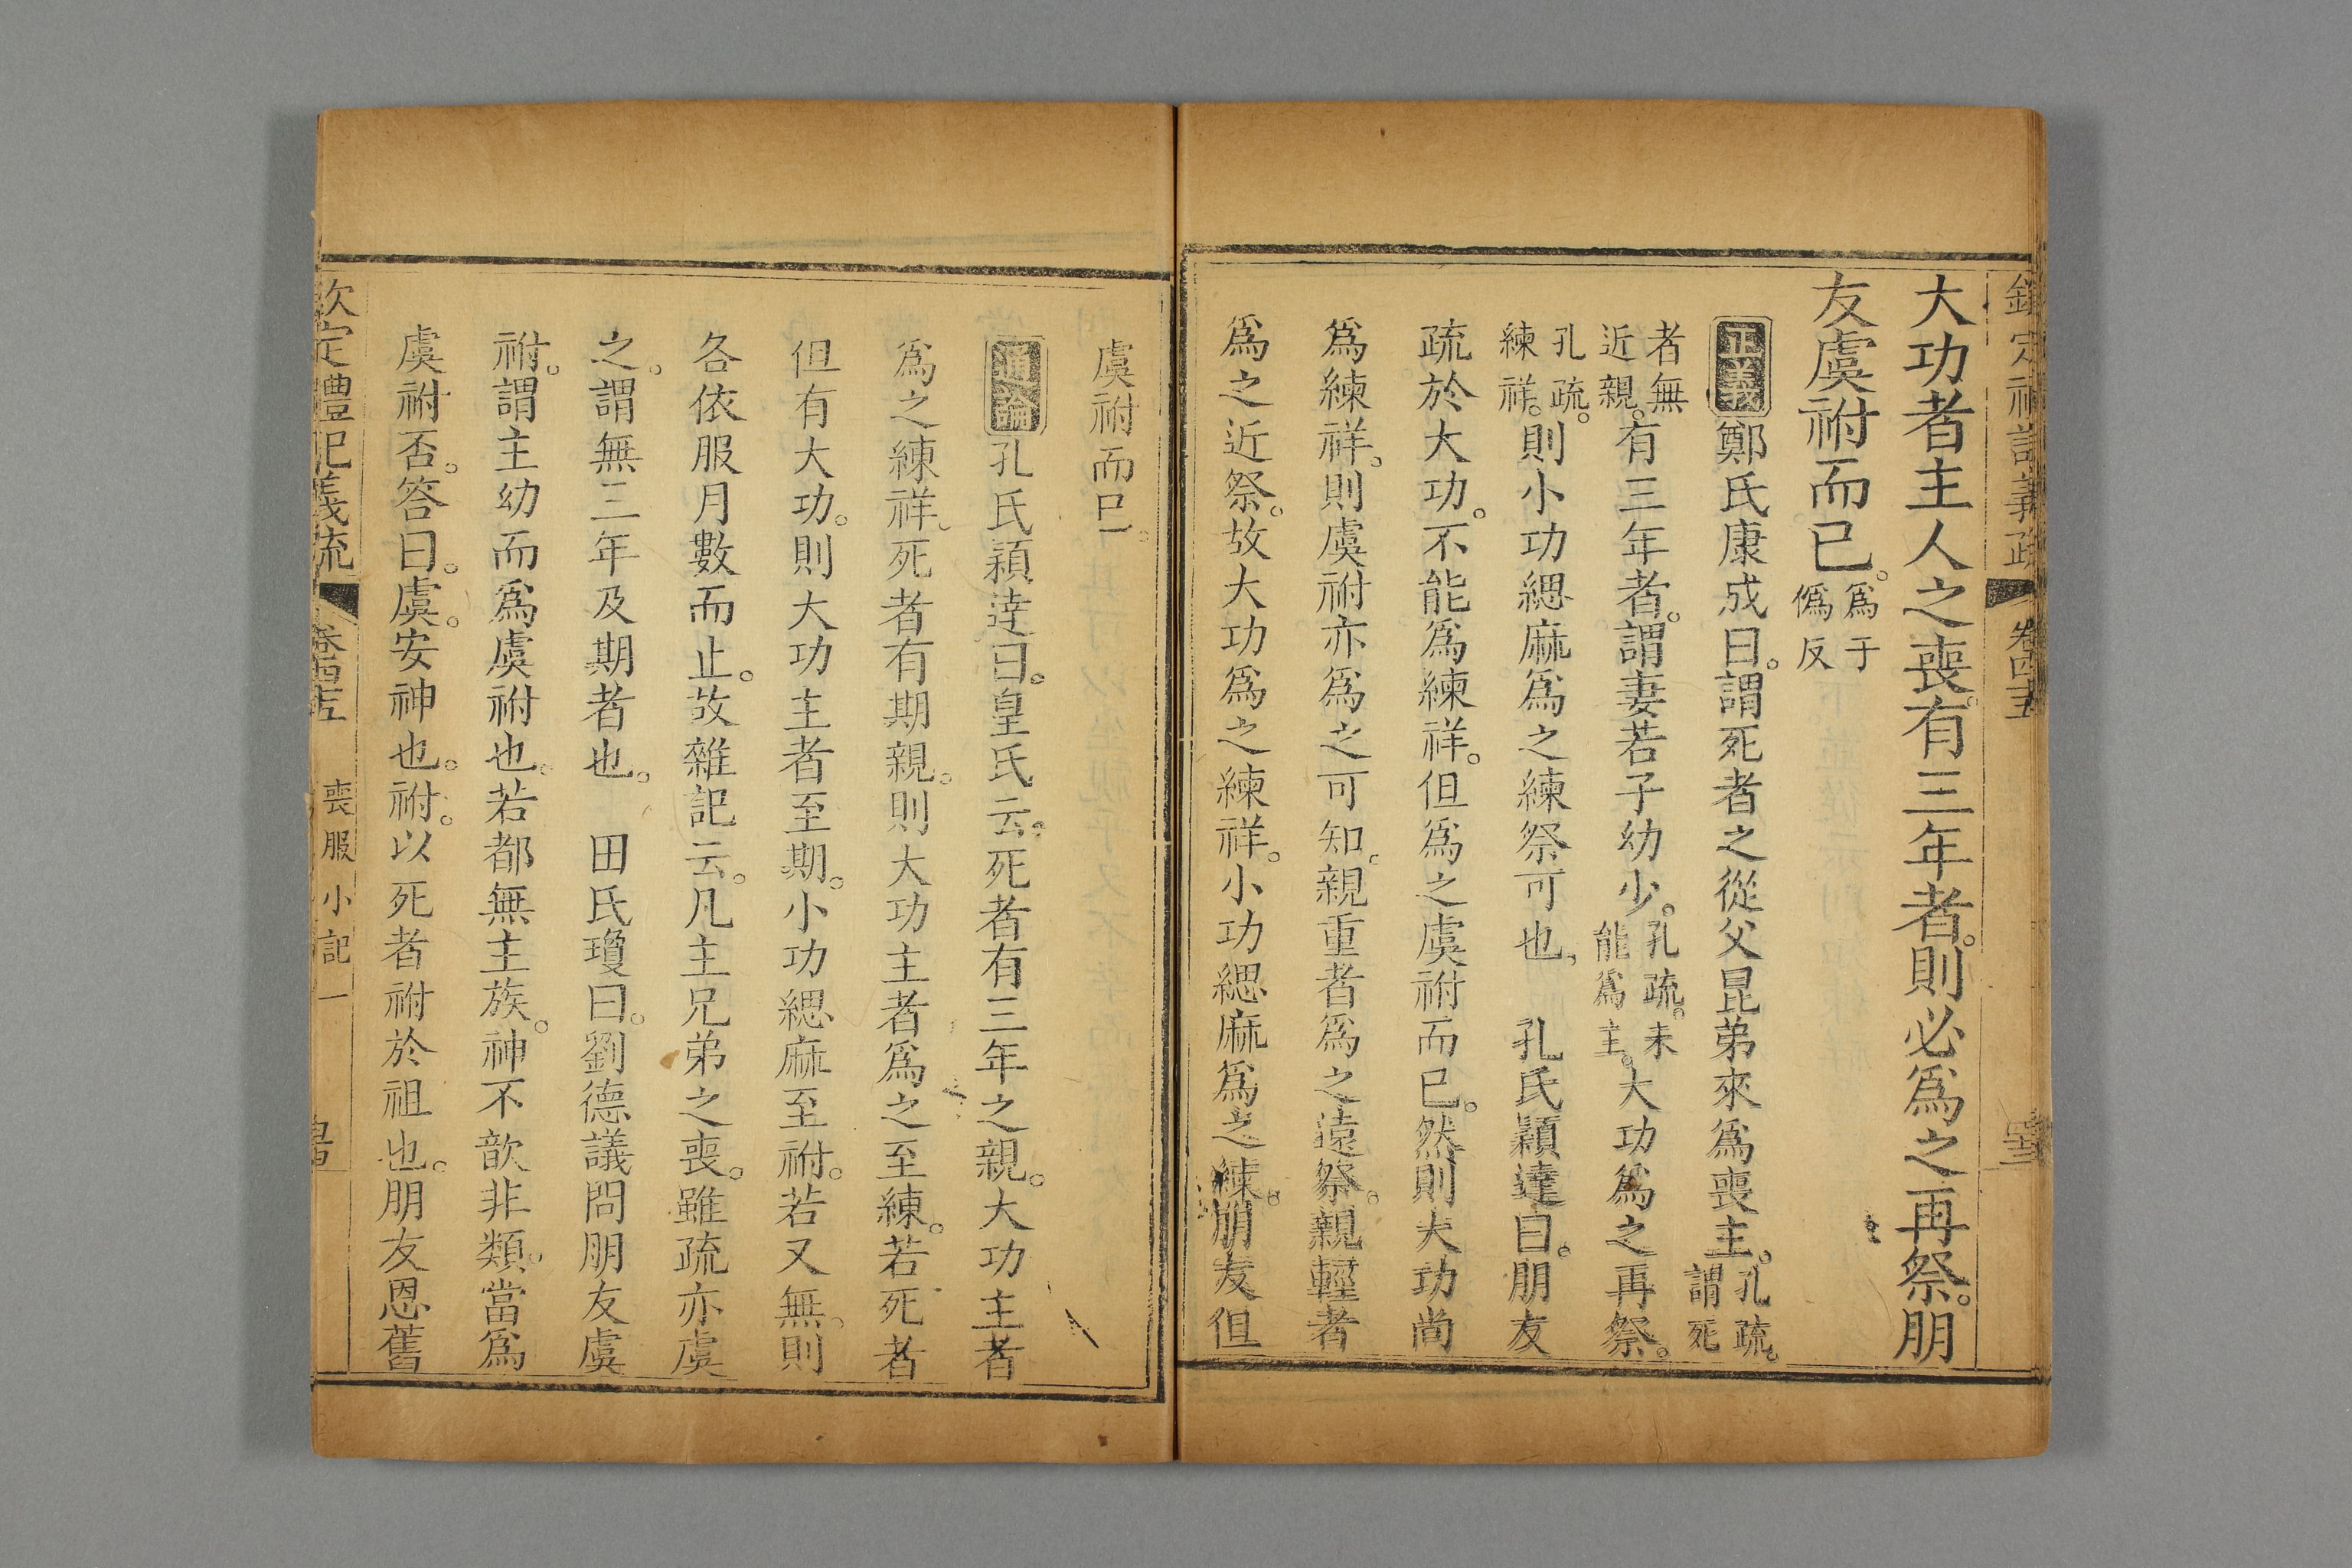 欽定禮記義疏 卷四十五 四十三
大功者主人之喪。有三年者。則必爲之再祭。朋
友虞祔而已。爲于僞反
正義鄭氏康成曰。謂死者之從父昆弟來爲喪主。孔疏。謂死
者無近親。有三年者。謂妻若子幼少。孔疏。未能爲主。大功爲之再祭。
孔疏。練祥。則小功緦麻爲之練祭可也。 孔氏穎達曰。朋友
疏於大功。不能爲練祥。但爲之虞祔而已。然則大功尚
爲練祥。則虞祔亦爲之可知。親重者爲之遠祭。親輕者
爲之近祭。故大功爲之練祥。小功緦麻爲之練。朋友但
虞祔而已。
通論孔氏穎達曰。皇氏云。死者有三年之親。大功主者
爲之練祥。死者有期親。則大功主者爲之至練。若死者
但有大功。則大功主者至期。小功緦麻至祔。若又無。則
各依服月數而止。故雜記云。凡主兄弟之喪。雖疏亦虞
之。謂無三年及期者也。 田氏瓊曰。劉德議問朋友虞
祔。謂主幼而爲虞祔也。若都無主族。神不歆非類。當爲
虞祔否。答曰。虞。安神也。祔。以死者祔於祖也。朋友恩舊
欽定禮記義疏 卷四十五 喪服小記一 四十四